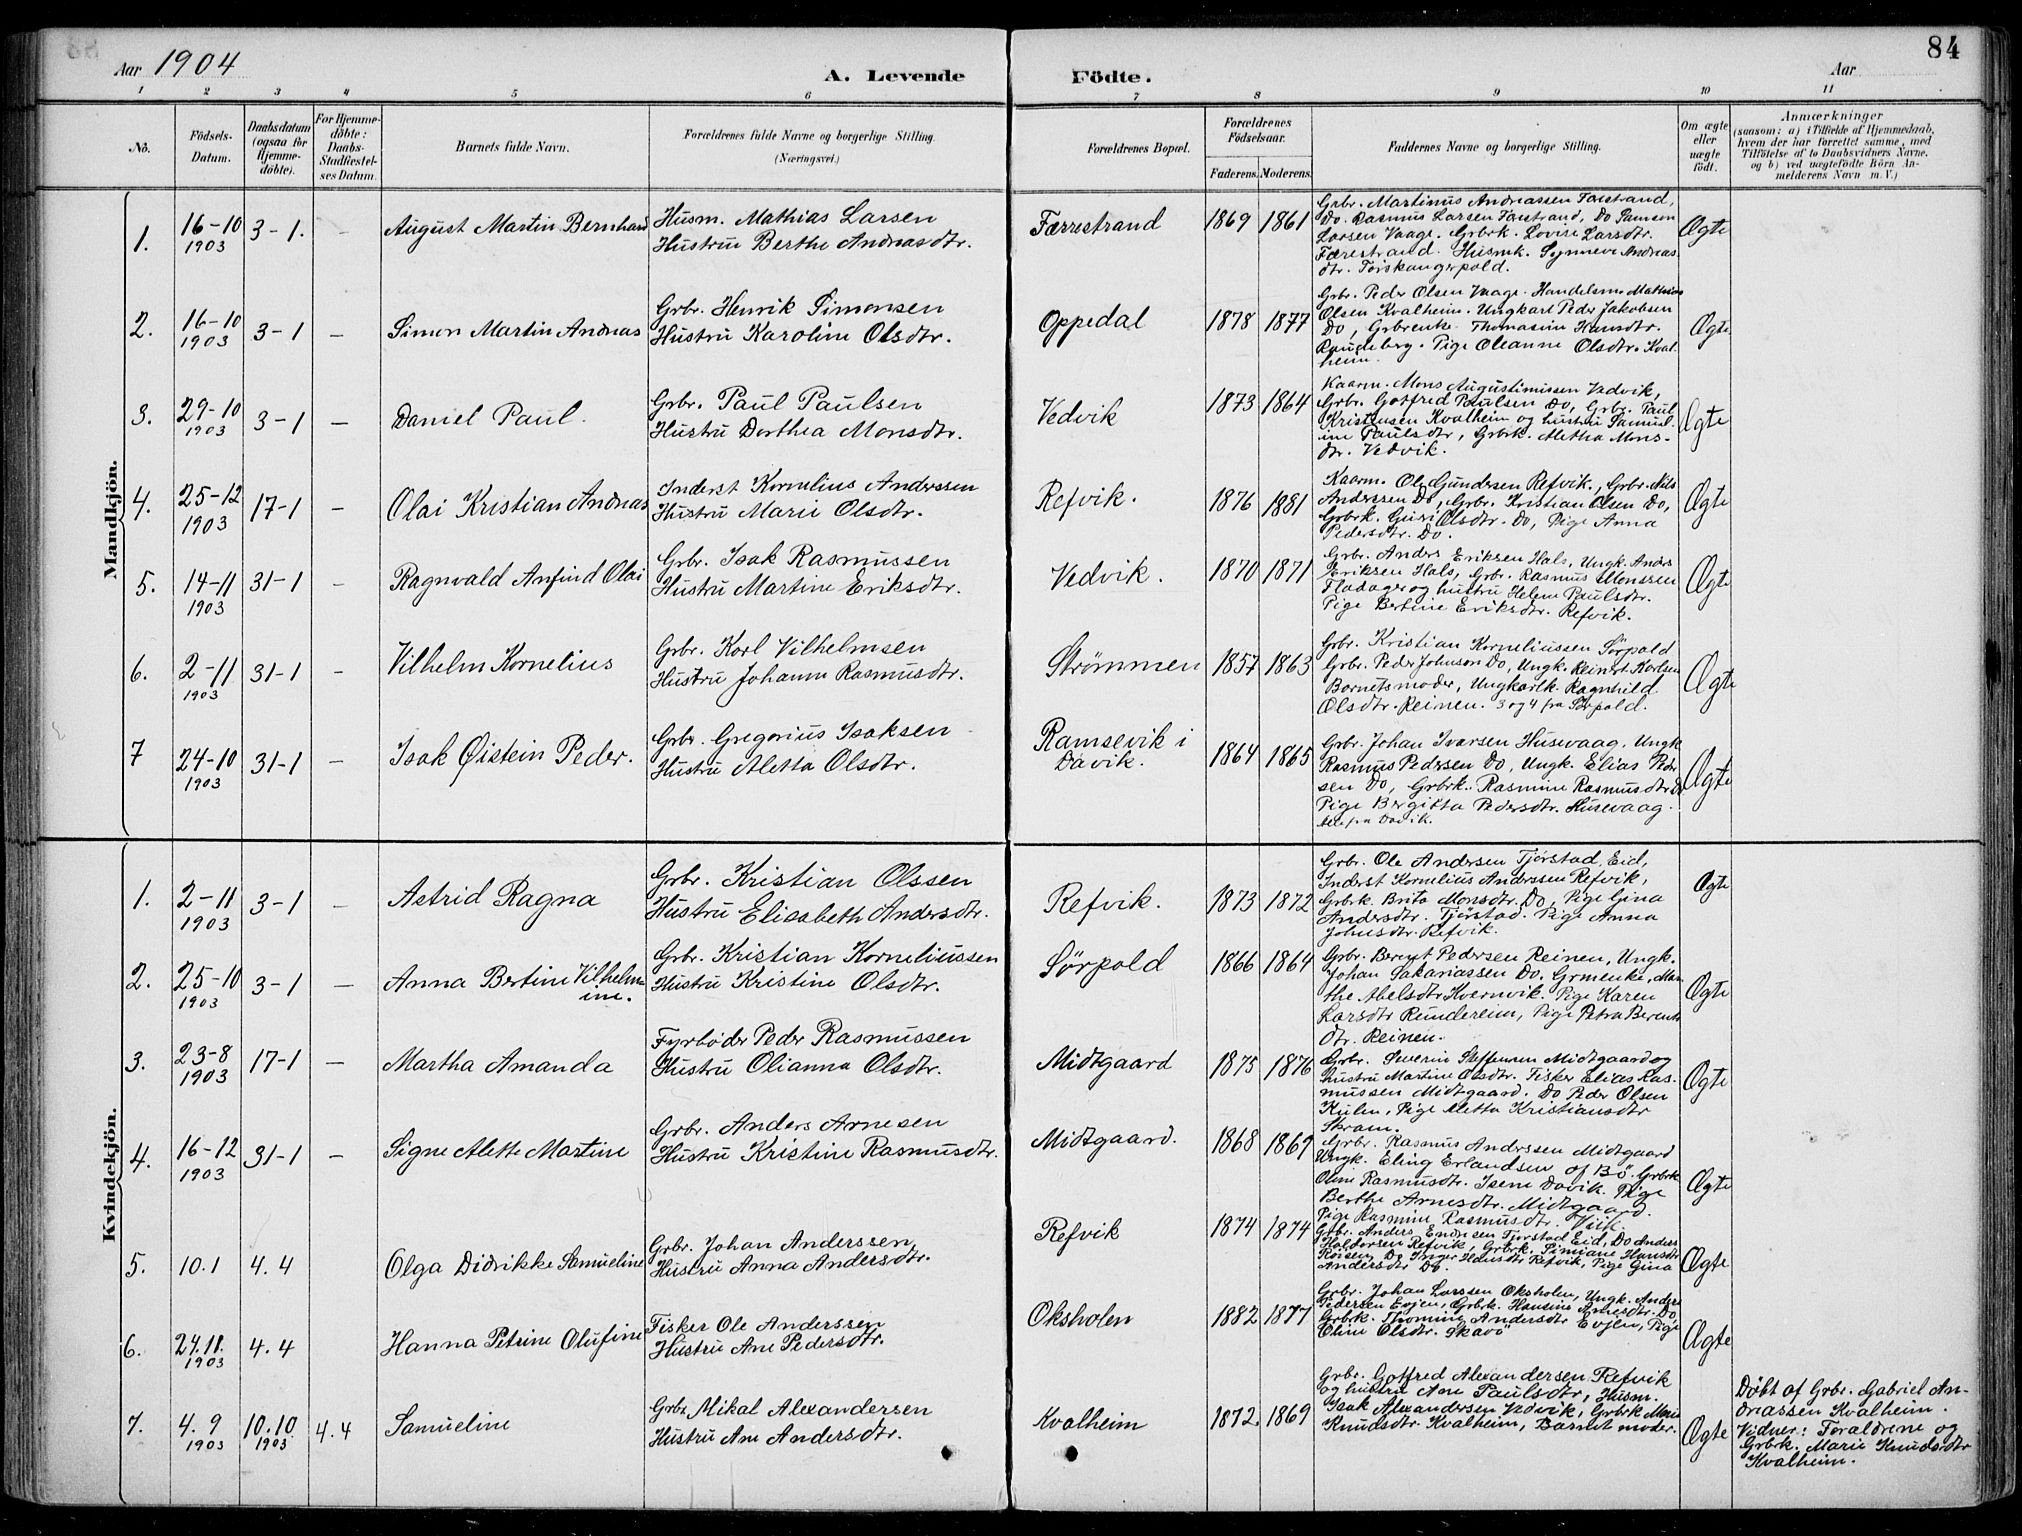 Aar 1904
A. Levende Födte.
Aar
84
1 2 3 4 5 6 7 8 9 10 11
No.
Födsels-Datum.
Daabsdatum (ogsaa for Hjemme-döbte).
For Hjemme-döbte: Daabs-Stadfæstel-ses Datum.
Barnets fulde Navn.
Forældrenes fulde Navne og borgerlige Stilling. (Næringsvei.)
Forældrenes Bopæl.
Forældrenes Födselsaar.
Faderens. Moderens.
Faddernes Navne og borgerlige Stilling.
Om ægte eller uægte födt.
Anmærkninger
(saasom: a) i Tilfælde af Hjemmedaab,
hvem der har forrettet samme, med
Tilföielse af to Daabsvidners Navne.
og b) ved uægtefödte Börn An-
melderens Navn m. V.)
Mandkjön.
1. 16-10 1903 3-1. - August Martin Bernhard
Husm. Mathias Larsen
Hustru Berthe Andreasdtr.
Færrestrand 1869 1861
Grbr. Martinus Andreassen Færstrand,
Do. Rasmus Larsen Færstrand, Do Samson
Larsen Vaage. Grbrk. Lovise Larsdtr.
Færestrand. Husmk. Synneve Andreas
dtr. Torskangerpold.
Ægte
2. 16-10 1903 3-1 - Simon Martin Andreas
Grbr. Henrik Simonsen
Hustru Karoline Olsdtr.
Oppedal 1878 1877
Grbr. Peder Olsen Vaage. Handelsm. Mathias
Olsen Kvalheim. Ungkarl Peder Jakobsen
Do, Grbrenke Thomasine Hansdtr.
Raudeberg. Pige Oleanne Olsdtr. Kval-
heim.
Ægte
3. 29-10 1903 3-1 - Daniel Paul.
Grbr. Paul Paulsen
Hustru Dorthea Monsdtr.
Vedvik 1873 1864
Kaarm. Mons Augustinussen Vedvik,
Grbr. Gotfred Paulsen Do, Grbr. Paul
Kristensen Kvalheim og hustru Samuel-
ine Paulsdtr, Grbrk. Aletha Mons-
dtr. Vedvik.
Ægte
4. 25-12 1903 17-1 - Olai Kristian Andreas
Inderst Kornelius Anderssen
Hustru Marie Olsdtr.
Refvik. 1876 1881
Kaarm. Ole Gundersen Refvik., Grbr. Nils
Anderssen Do, Grbr. Kristian Olsen Do,
Grbrk. Guri Olsdtr. Do, Pige Anna
Pedersdtr. Do.
Ægte
5. 14-11 1903 31-1 - Ragnvald Anfind Olai
Grbr. Isak Rasmussen
Hustru Martine Eriksdtr.
Vedvik. 1870 1871
Grbr. Anders Eriksen Hals, Ungk. Anders
Eriksen Hals, Grbr. Rasmus Monssen
Fladager og hustru Helene Paulsdtr.
Pige Bertine Eriksdtr. Refvik.
Ægte
6. 2-11 1903 31-1 - Vilhelm Kornelius
Grbr. Karl Vilhelmsen
Hustru Johanne Rasmusdtr.
Strømmen 1857 1863
Grbr. Kristian Korneliussen Sörpold
Grbr. Peder Johnson Do, Ungk. Reinert Karlsen
Barnets moder, Ungkarlk. Ragnhild
Olsdtr. Reinen. 3 og 4 fra Sörpold.
Ægte
7 24-10 1903 31-1 - Isak Øistein Peder.
Grbr. Gregorius Isaksen
Hustru Aletta Olsdtr.
Ramsevik i Davik. 1864 1865
Grbr. Johan Ivarsen Husevaag, Ungk
Rasmus Pedersen Do, Ungk. Elias Peder
sen Do, Grbrk. Rasmine Rasmusdtr Do
Pige Bergitta Pedersdtr. Husevaag.
Alle fra Davik.
Ægte
Kvindekjön.
1. 2-11 1903 3-1 - Astrid Ragna
Grbr. Kristian Olssen
Hustru Elisabeth Andersdtr.
Refvik. 1873 1872
Grbr. Ole Andersen Tjørstad, Eid,
Inderst Kornelius Anderssen Refvik,
Grbrk. Brita Monsdtr. Do, Pige Gina
Andersdtr. Tjørstad. Pige Anna
Johnsdtr. Refvik.
Ægte
2. 25-10 1903 3-1 - Anna Bertine Vilhelm-
ine.
Grbr. Kristian Korneliussen
Hustru Kristine Olsdtr.
Sörpold 1866 1864
Grbr. Berent Pedersen Reinen, Ungk.
Johan Sakariassen Do. Grmenke, Mar-
the Abelsdtr Kvernvik. Pige Karen
Larsdtr Rundereim, Pige Petra Berents
dtr. Reinen.
Ægte
3. 23-8 1903 17-1 - Martha Amanda
Fyrbøder Peder Rasmussen
Hustru Olianna Olsdtr.
Midtgaard 1875 1876
Grbr. Severin Steffensen Midtgaard og
hustru Martine Olsdtr. Fisker Elias Ras-
mussen Midtgaard. Do Peder Olsen
Kulen, Pige Aletta Kristiansdtr
Skram.
Ægte
4. 16-12 1903 31-1 - Signe Alette Martine
Grbr. Anders Arnesen
Hustru Kristine Rasmusdtr.
Midtgaard. 1868 1869
Grbr. Rasmus Anderssen Midtgaard
Ungk. Eling Erlandsen af Bö. Grbrk
Oline Rasmusdtr. Isene Davik. Pige
Berthe Arnesdtr. Midtgaard.
Pige Rasmine Rasmusdtr. Viik.
Ægte
5. 10.1 4.4 Olga Didrikke Samueline
Grbr. Johan Anderssen
Hustru Anna Andersdtr.
Refvik 1874 1874
Grbr. Anders Endresen Tjørstad Eid, Do Anders
Haldorsen Refvik, Grbrk. Simiane Hansdtr
Røisen, Do Inger Hansdtr Refvik, Pige Gina
Andersdtr Do.
Ægte
6. 24.11. 1903 4.4 Hanna Petrine Olufine
Fisker Ole Anderssen
Hustru Ane Pedersdtr.
Oksholen 1882 1877
Grbr. Johan Larssen Oksholen, Ungk. Anders
Pedersen Evjen, Grbrk. Hansine Arnesdtr. Do,
Grbrk. Thomine Andersdtr Evjen, Pige
Oline Olsdtr. Skavö
Ægte
7. 4.9 1903 10.10 1903 4.4 Samueline
Grbr. Mikal Alexandersen
Hustru Ane Andersdtr.
Kvalheim 1872. 1869
Grbr. Gotfred Alexandersen Refvik
og hustru Ane Paulsdtr, Husm.
Isak Alexandersen Vedvik, Grbrk Marie
Knudsdtr. Kvalheim, Barnets moder.
Ægte
Döbt af Grbr. Gabriel An-
dreassen Kvalheim.
Vidner: Forældrene og
Grbrk. Marie Knudsdtr
Kvalheim.